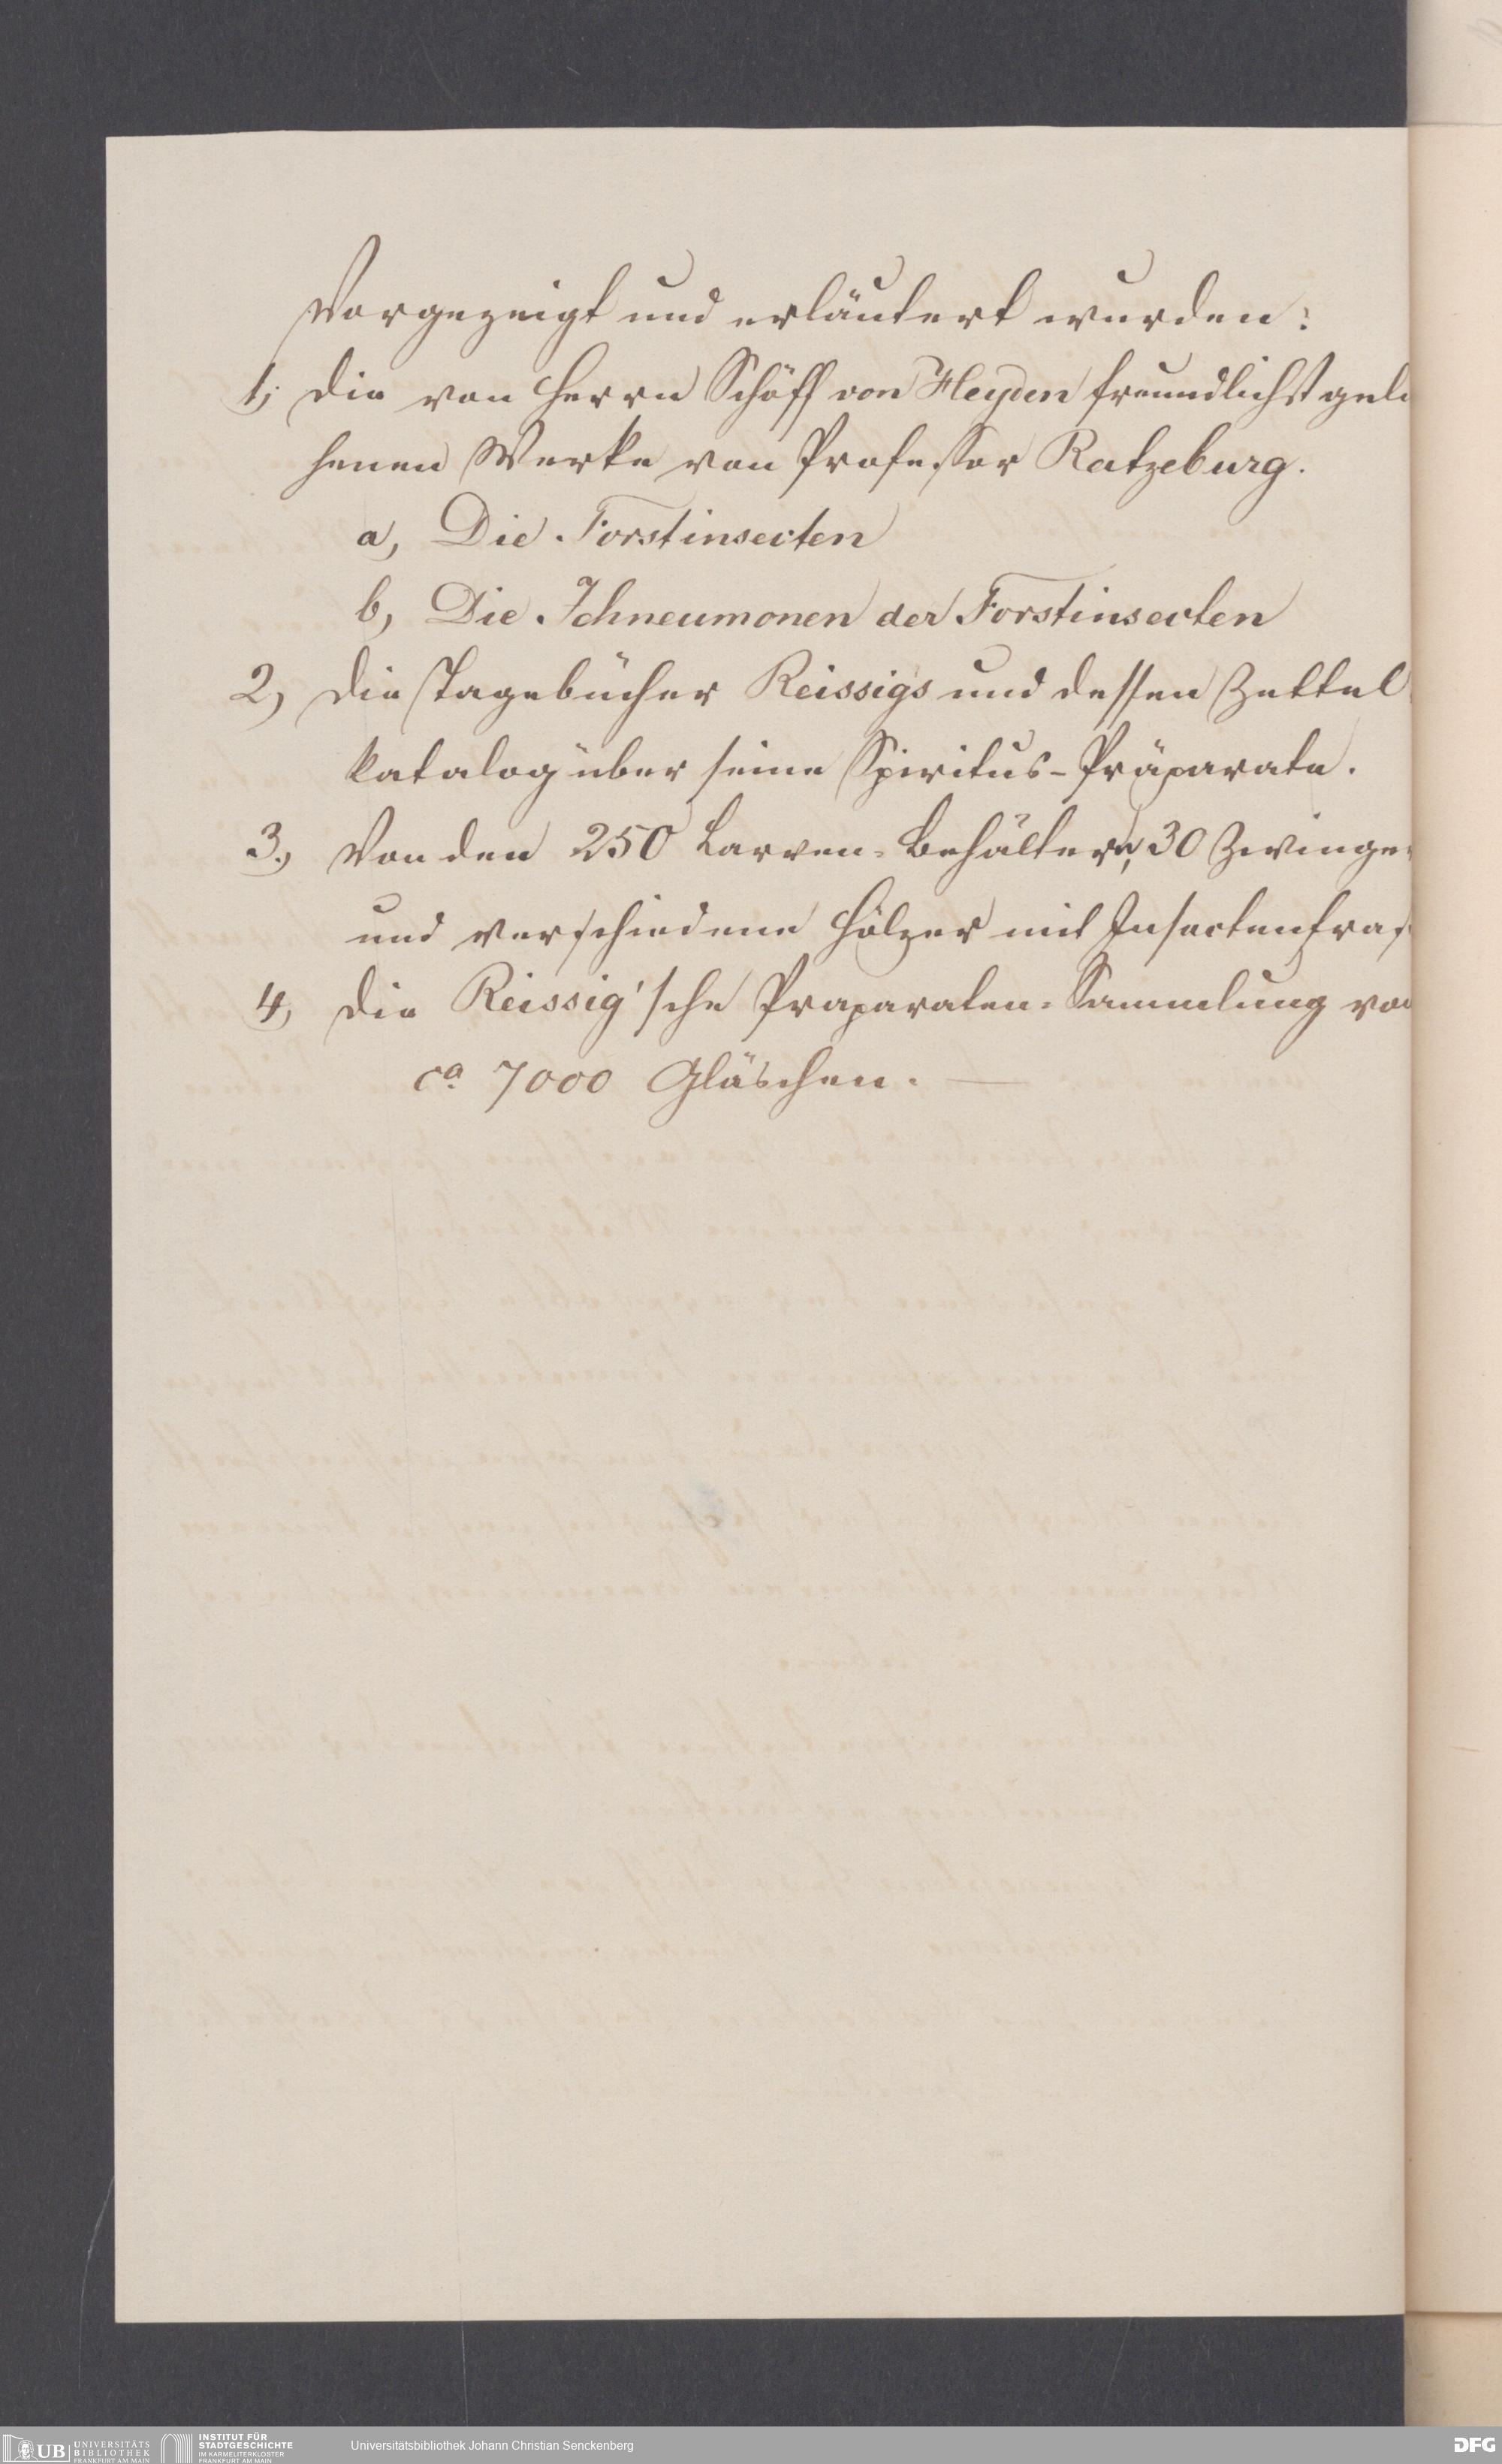 Vorgezeigt und erläutert wurden:
1, die von Herrn Schöff von Heyden freundlichst gelie
henen Werke von Professor Ratzeburg.
a, Die Forstinsecten
b, Die Ichneumonen der Forstinsecten
2, die Tagebücher Reissigs und dessen Zettel
katalog über seine Spiritus-Präparate.
3., Von den 250 Larven-Behältern, 30 Zwinger
und verschiedene Hölzer mit Insectenfraß
4, die Reissig'sche Praparaten-Sammlung von
ca. 7000 Gläschen. —
UB UNIVERSITÄTS
BIBLIOTHEK
FRANKFURT AM MAIN
INSTITUT FÜR
STADTGESCHICHTE
IM KARMELITERKLOSTER
FRANKFURT AM MAIN
Universitätsbibliothek Johann Christian Senckenberg
DFG